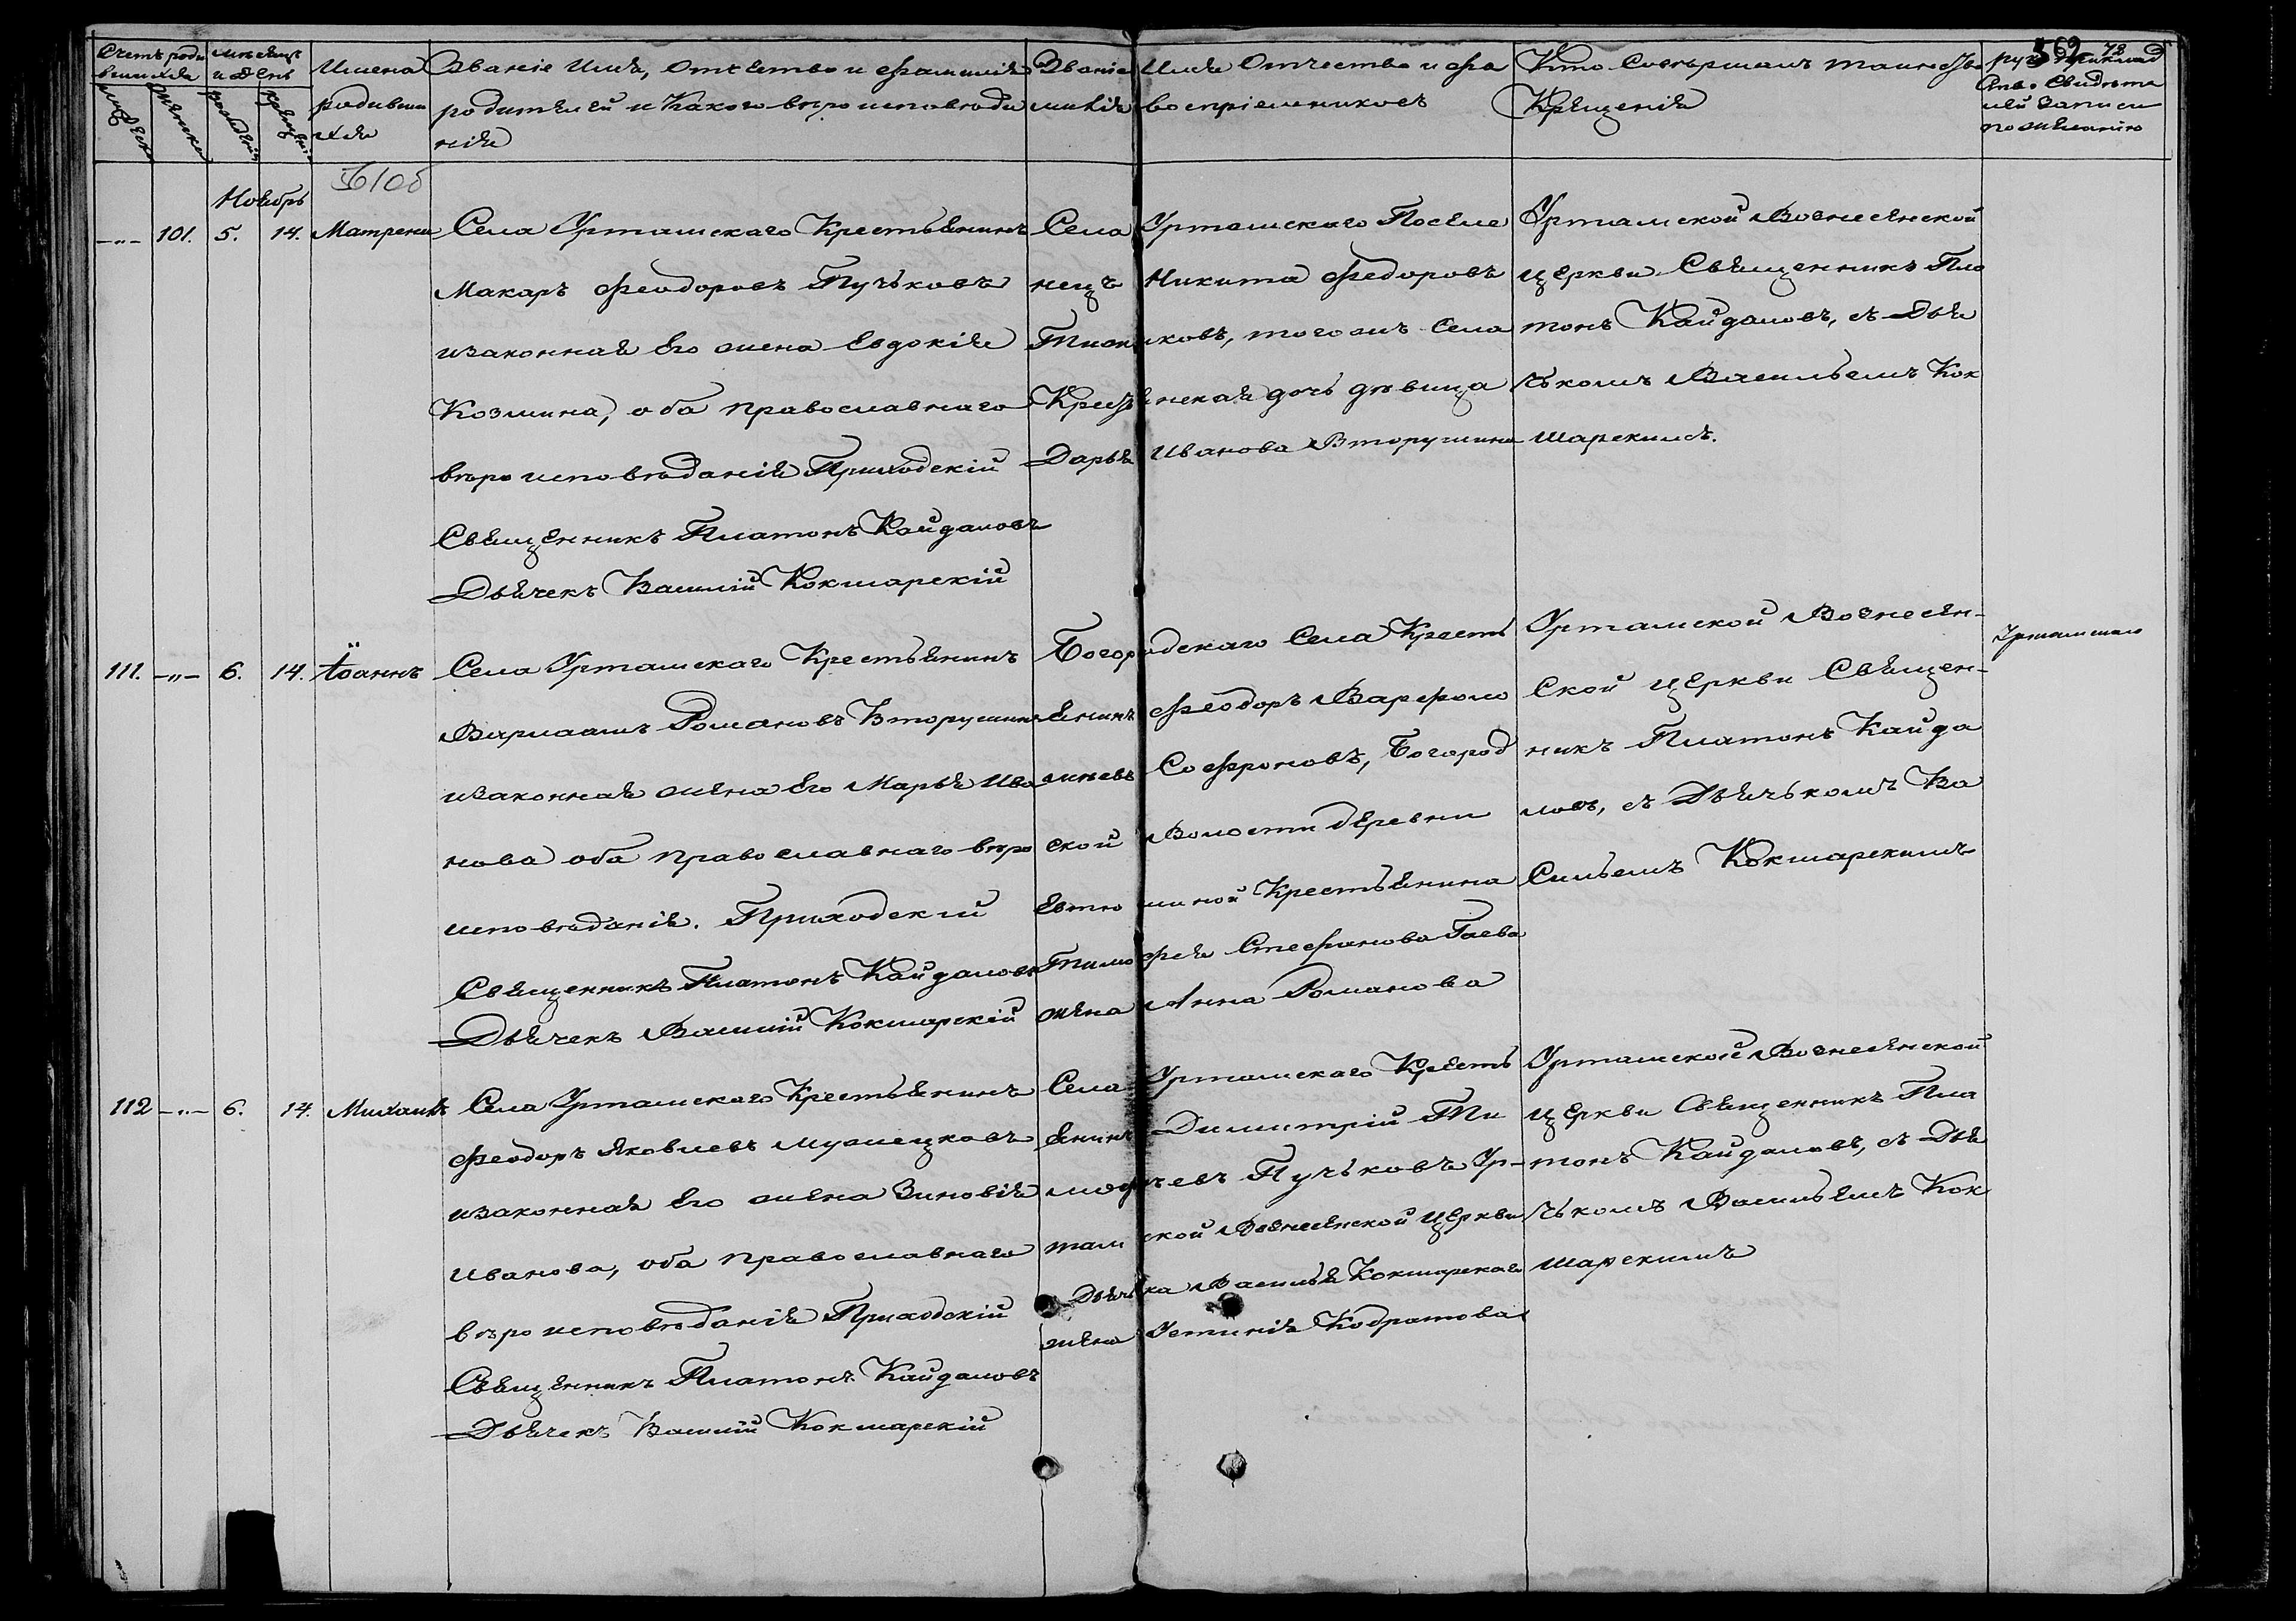 569 72
Счетъ роди
вшихся
мѣсяцъ
и день
Имена
родивши
хся
Званіе Имя, Отчество и фамилія
родителей и Какого вѣроисповѣда
нія
Званіе Имя Отчество и фа
милія воспріемниковъ
Кто Совершалъ таинство
Крещенія
рукоприклад
Ство Свидѣте
лей записи
по желанію
рожденія
крещенія
5610б
Ноябрь
—„— 101. 5. 14. Матрена
Села Уртамскаго Крестьянинъ
Макаръ Феодоровъ Пучьковъ
изаконная Его жена Евдокія
Козмина, оба православнаго
вѣро исповѣданія Приходскій
Священникъ Платонъ Кайдаловъ
Дьячекъ Василій Кокшарскій
Села Уртамскаго Поселе
нецъ Никита Федоровъ
того жъ Села
Крестьянская дочь дѣвица
Дарья Иванова Вторушина
Уртамской Вознесенской
церкви Священникъ Пла
тонъ Кайдаловъ, съ Дья
чькомъ Васильемъ Кок
шарскимъ.
111. —„— 6. 14. Іоаннъ
Села Уртамскаго Крестьянинъ
Варлаамъ Романовъ Вторушинъ
изаконная жена Его Марья Ива
нова оба православнаго вѣро
исповѣданія. Приходскій
Священникъ Платонъ Кайдаловъ
Дьячекъ Василій Кокшарскій
Богородскаго Села Кресть
янинъ Феодоръ Варфоло
мѣевъ Софроновъ, Богород
ской Волости деревни
Евтюшиной Крестьянина
Тимофея Стефанова Гаева
жена Анна Романова
Уртамской Вознесен-
Ской церкви Священ-
никъ Платонъ Кайда
ловъ, съ Дьячькомъ Ва
Сильемъ Кокшарскимъ
112 —„— 6. 14. Михаилъ
Села Уртамскаго Крестьянинъ
Феодоръ Яковлевъ Мужецковъ
изаконная Его жена Зиновія
Иванова, оба православнаго
вѣро исповѣданія Приходскій
Священникъ Платонъ Кайдаловъ
Дьячекъ Василій Кокшарскій
Села Уртамскаго Кресть
янинъ Димитрій Ти
мофѣевъ Пучьковъ Ур-
тамской Вознесенской Церкви
Дьячька Василья Кокшарскаго
жена Устинія Кодратова
Уртамской Вознесенской
церкви Священникъ Пла
тонъ Кайдаловъ, съ Дья
чькомъ Васильемъ Кок
шарскимъ